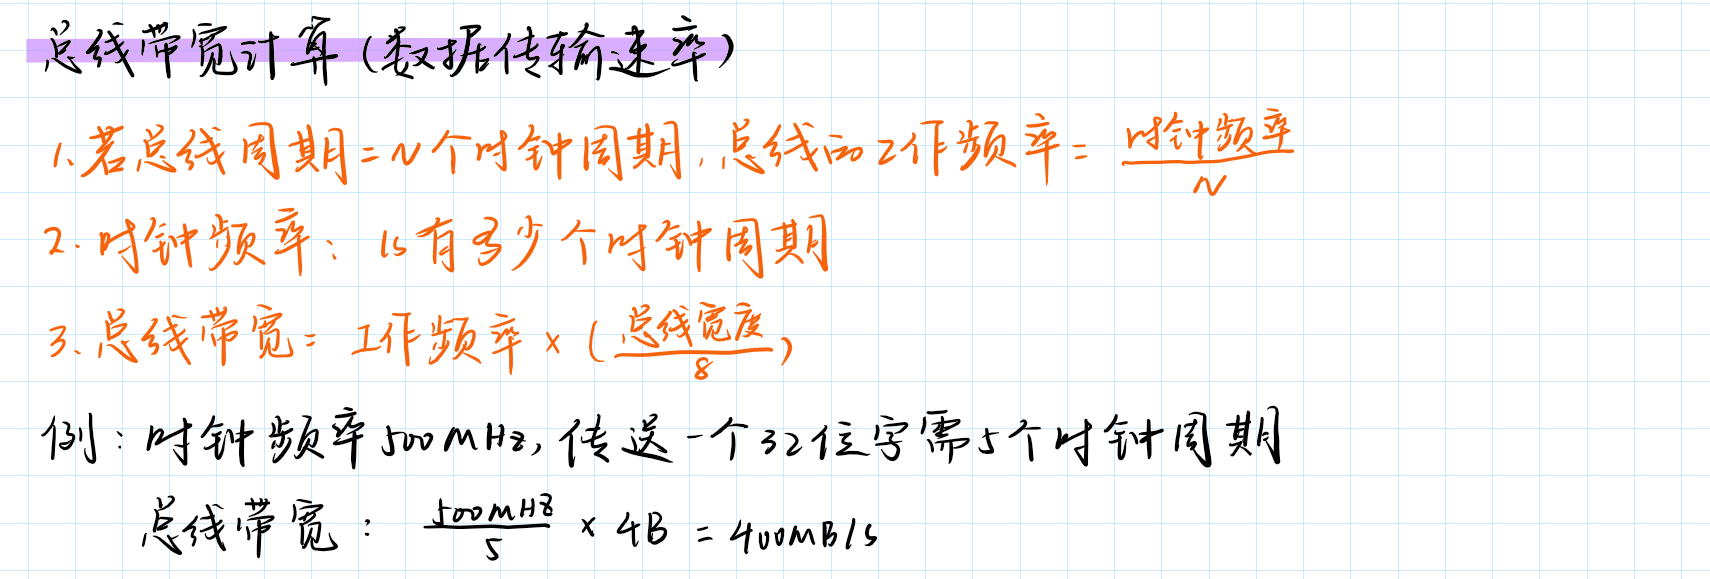 总线带宽计算(数据传输速率)
1.若总线周期=N个时钟周期,总线的工作频率= 时钟频率/N
2.时钟频率: 1s有多少个时钟周期
3.总线带宽= 工作频率 × (总线宽度/8)
例: 时钟频率500MHz,传送一个32位字需5个时钟周期
总线带宽: 500MHz/5 × 4B = 400MB/s